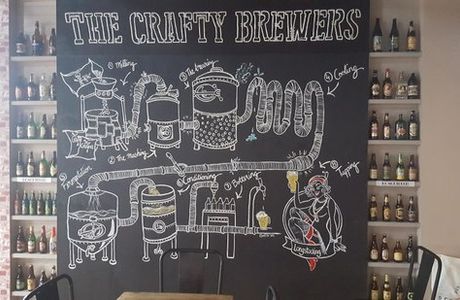 THE CRAFTY BREWERS
① Milling
③ The brewing
④ Cooling
② The mashing
⑤ Fermentation
⑥ Conditioning
⑧ Tapping
Longstocking